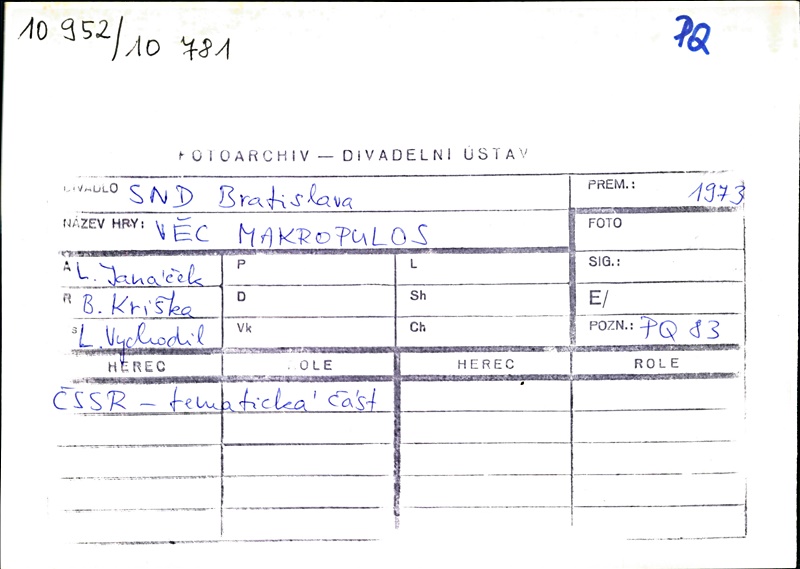 10 952/10 781
PQ
FOTOARCHIV — DIVADELNÍ ÚSTAV
DIVADLO SND Bratislava
PREM.: 1973
NÁZEV HRY: VĚC MAKROPULOS
FOTO
A L. Janáček P L SIG.:
R B. Kriška D Sh E/
S L. Vychodil Vk Ch POZN.: PQ 83
HEREC ROLE HEREC ROLE
ČSSR – tematická část